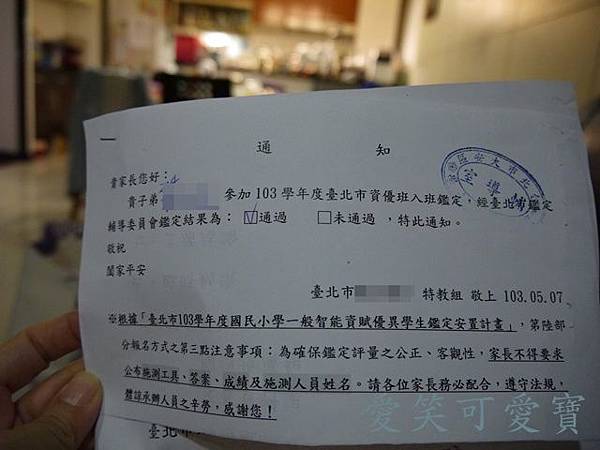 通 知
貴家長您好：
貴子弟 參加 103 學年度臺北市資優班入班鑑定，經臺北市鑑定
輔導委員會鑑定結果為：☑通過 □未通過，特此通知。
敬祝
闔家平安
臺北市 特教組 敬上 103.05.07
※根據「臺北市103學年度國民小學一般智能資賦優異學生鑑定安置計畫」，第陸部
分報名方式之第三點注意事項：為確保鑑定評量之公正、客觀性，家長不得要求
公布施測工具、答案、成績及施測人員姓名。請各位家長務必配合，遵守法規，
體諒承辦人員之辛勞，感謝您！
臺北市
愛笑可愛寶